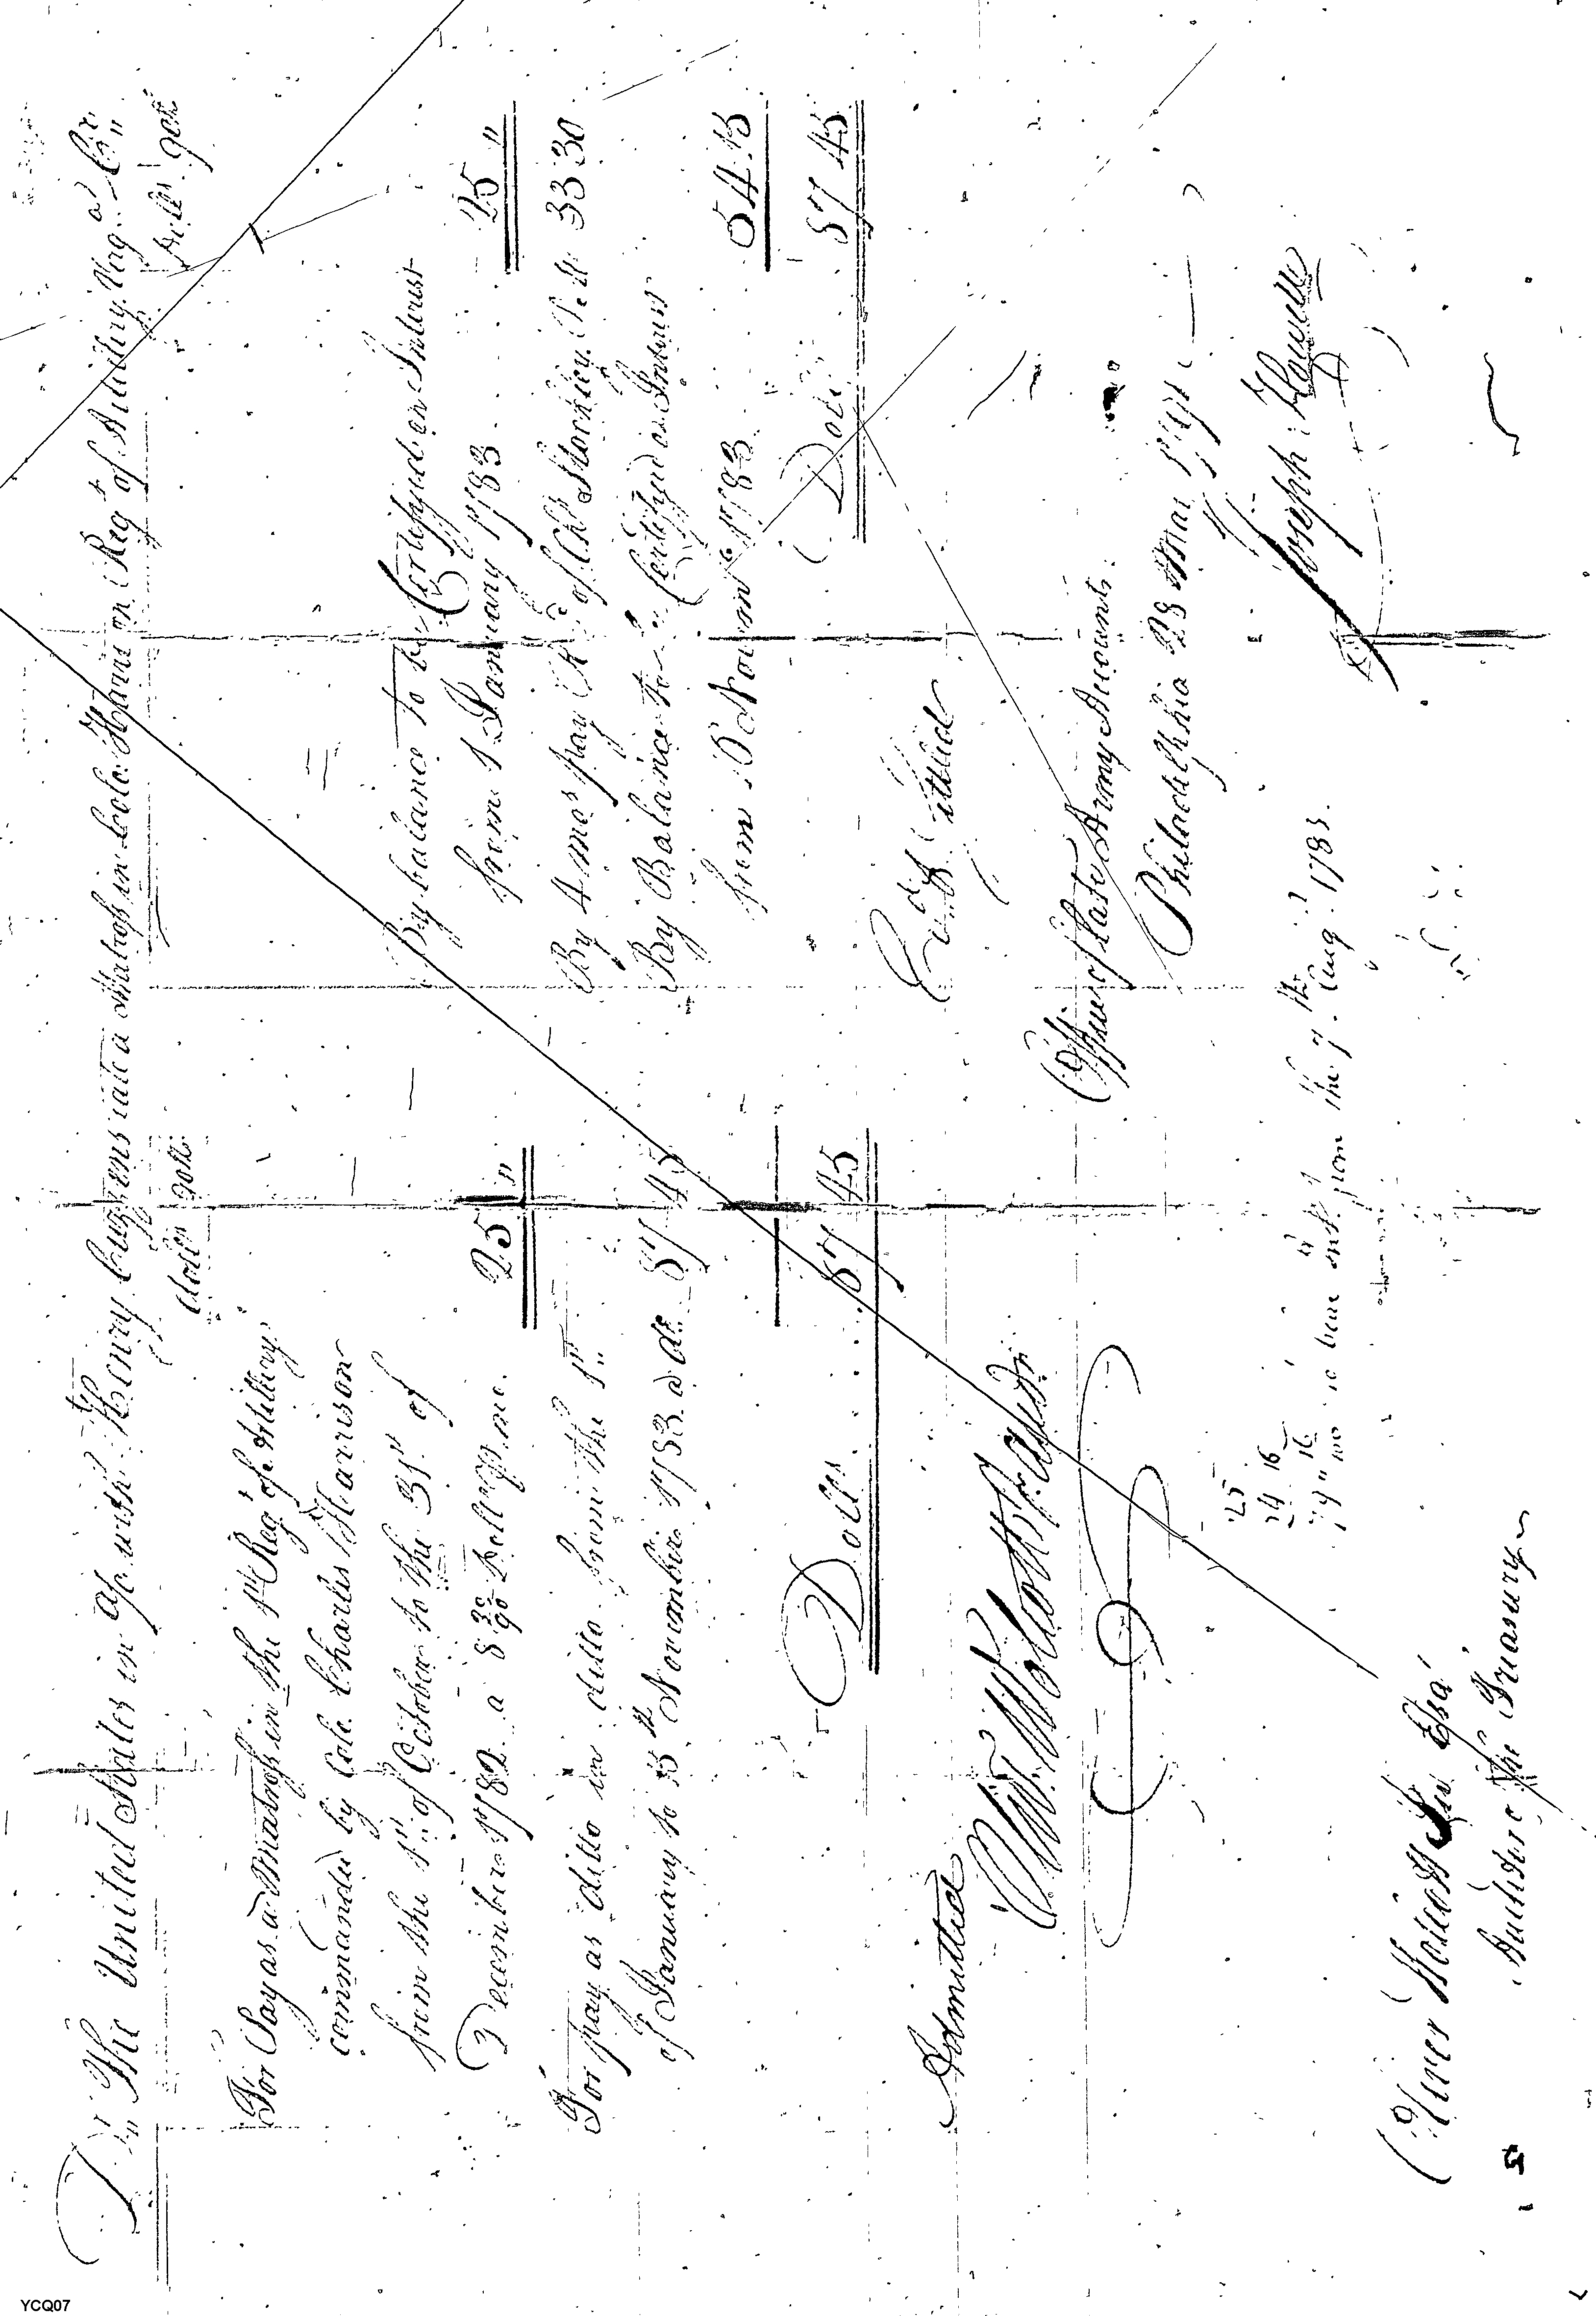 Dr. The United States in a/c with Henry Cuzzens late a Matross in Colo. Harrison Regt. of Artillery Virga. Cr.
Dolls 90ths
Dolls 90ths
For Pay as a Matross in the 1st Regt. of Artillery
commanded by Colo. Charles Harrison
from the 1st of October to the 31st of
December 1782 a 8 30/90 Dollrs p. mo.
25 "
For pay as ditto in ditto from the 1st
of January to 15th November 1783 a do. 87 45
Dolls 87 45
By balance to be Certifyed on Interest
from 1 January 1783
25 "
By 4 mos pay Rd of Chs Stockley P. M. 33 30
By Balance to be Certifyed on Interest
from 15 Novem 1783
54.15
Dolls 87 45
Admitted
Oliv. Wolcott Jr. Audr.
Entd. Settled
Office of late Army Accounts
Philadelphia 28 Mar 1791
Joseph Howell
25
54.16
79" 16/100 to have int. from the 7th Augt. 1783.
Oliver Wolcott Jur Esqr.
Auditor of the Treasury
YCQ07